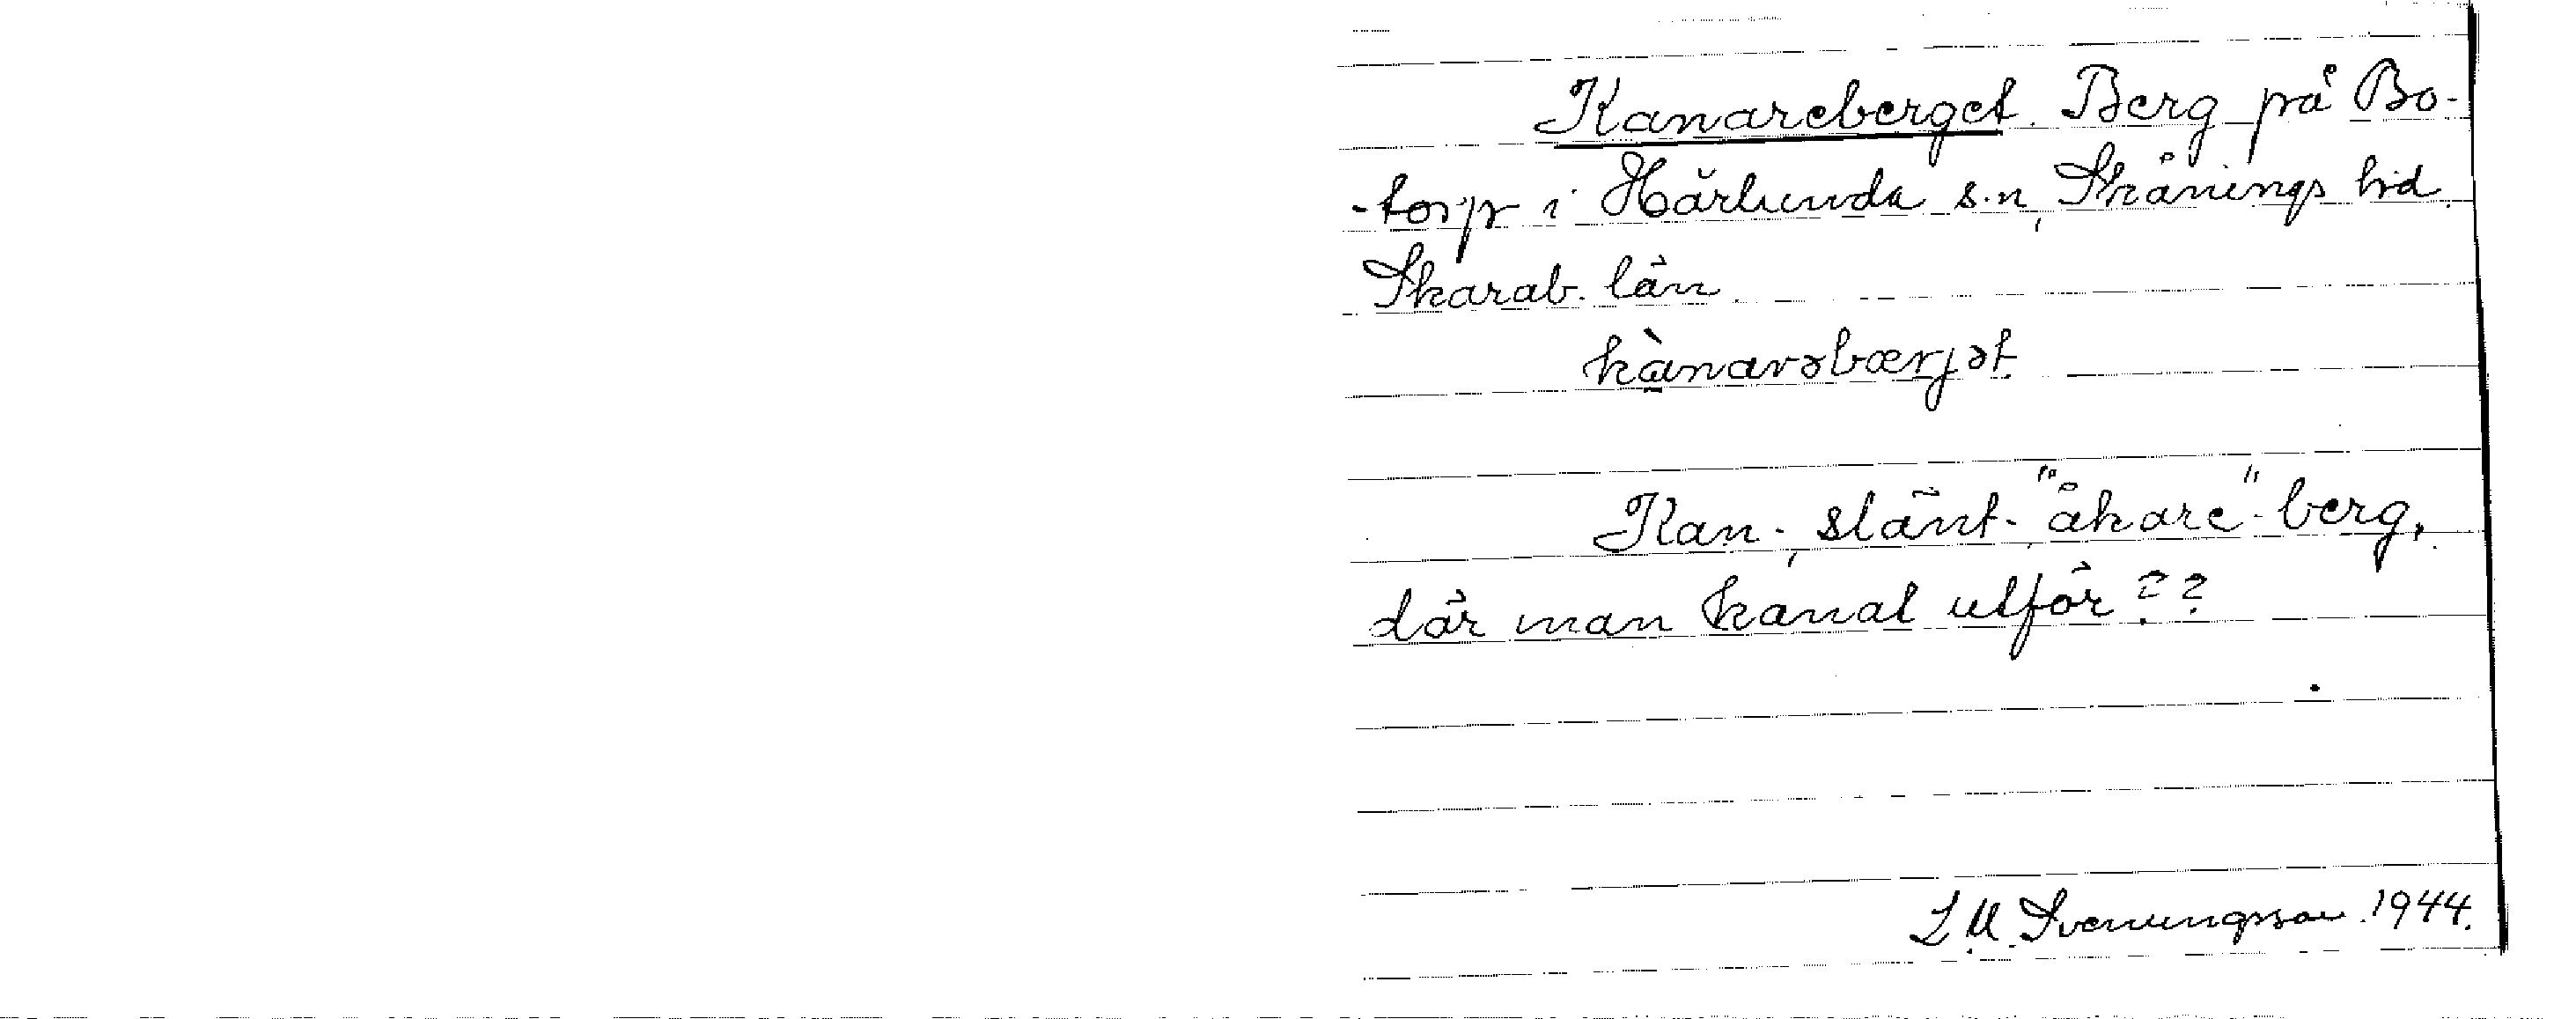 Kanareberget. Berg på Bo-
-torp i Hårlunda s.n, Skånings hd.
Skarab. län
kànarəbærjət
Kan-, slänt-, "åkare"-berg,
där man kanat utför??
L M Svenungsson 1944.